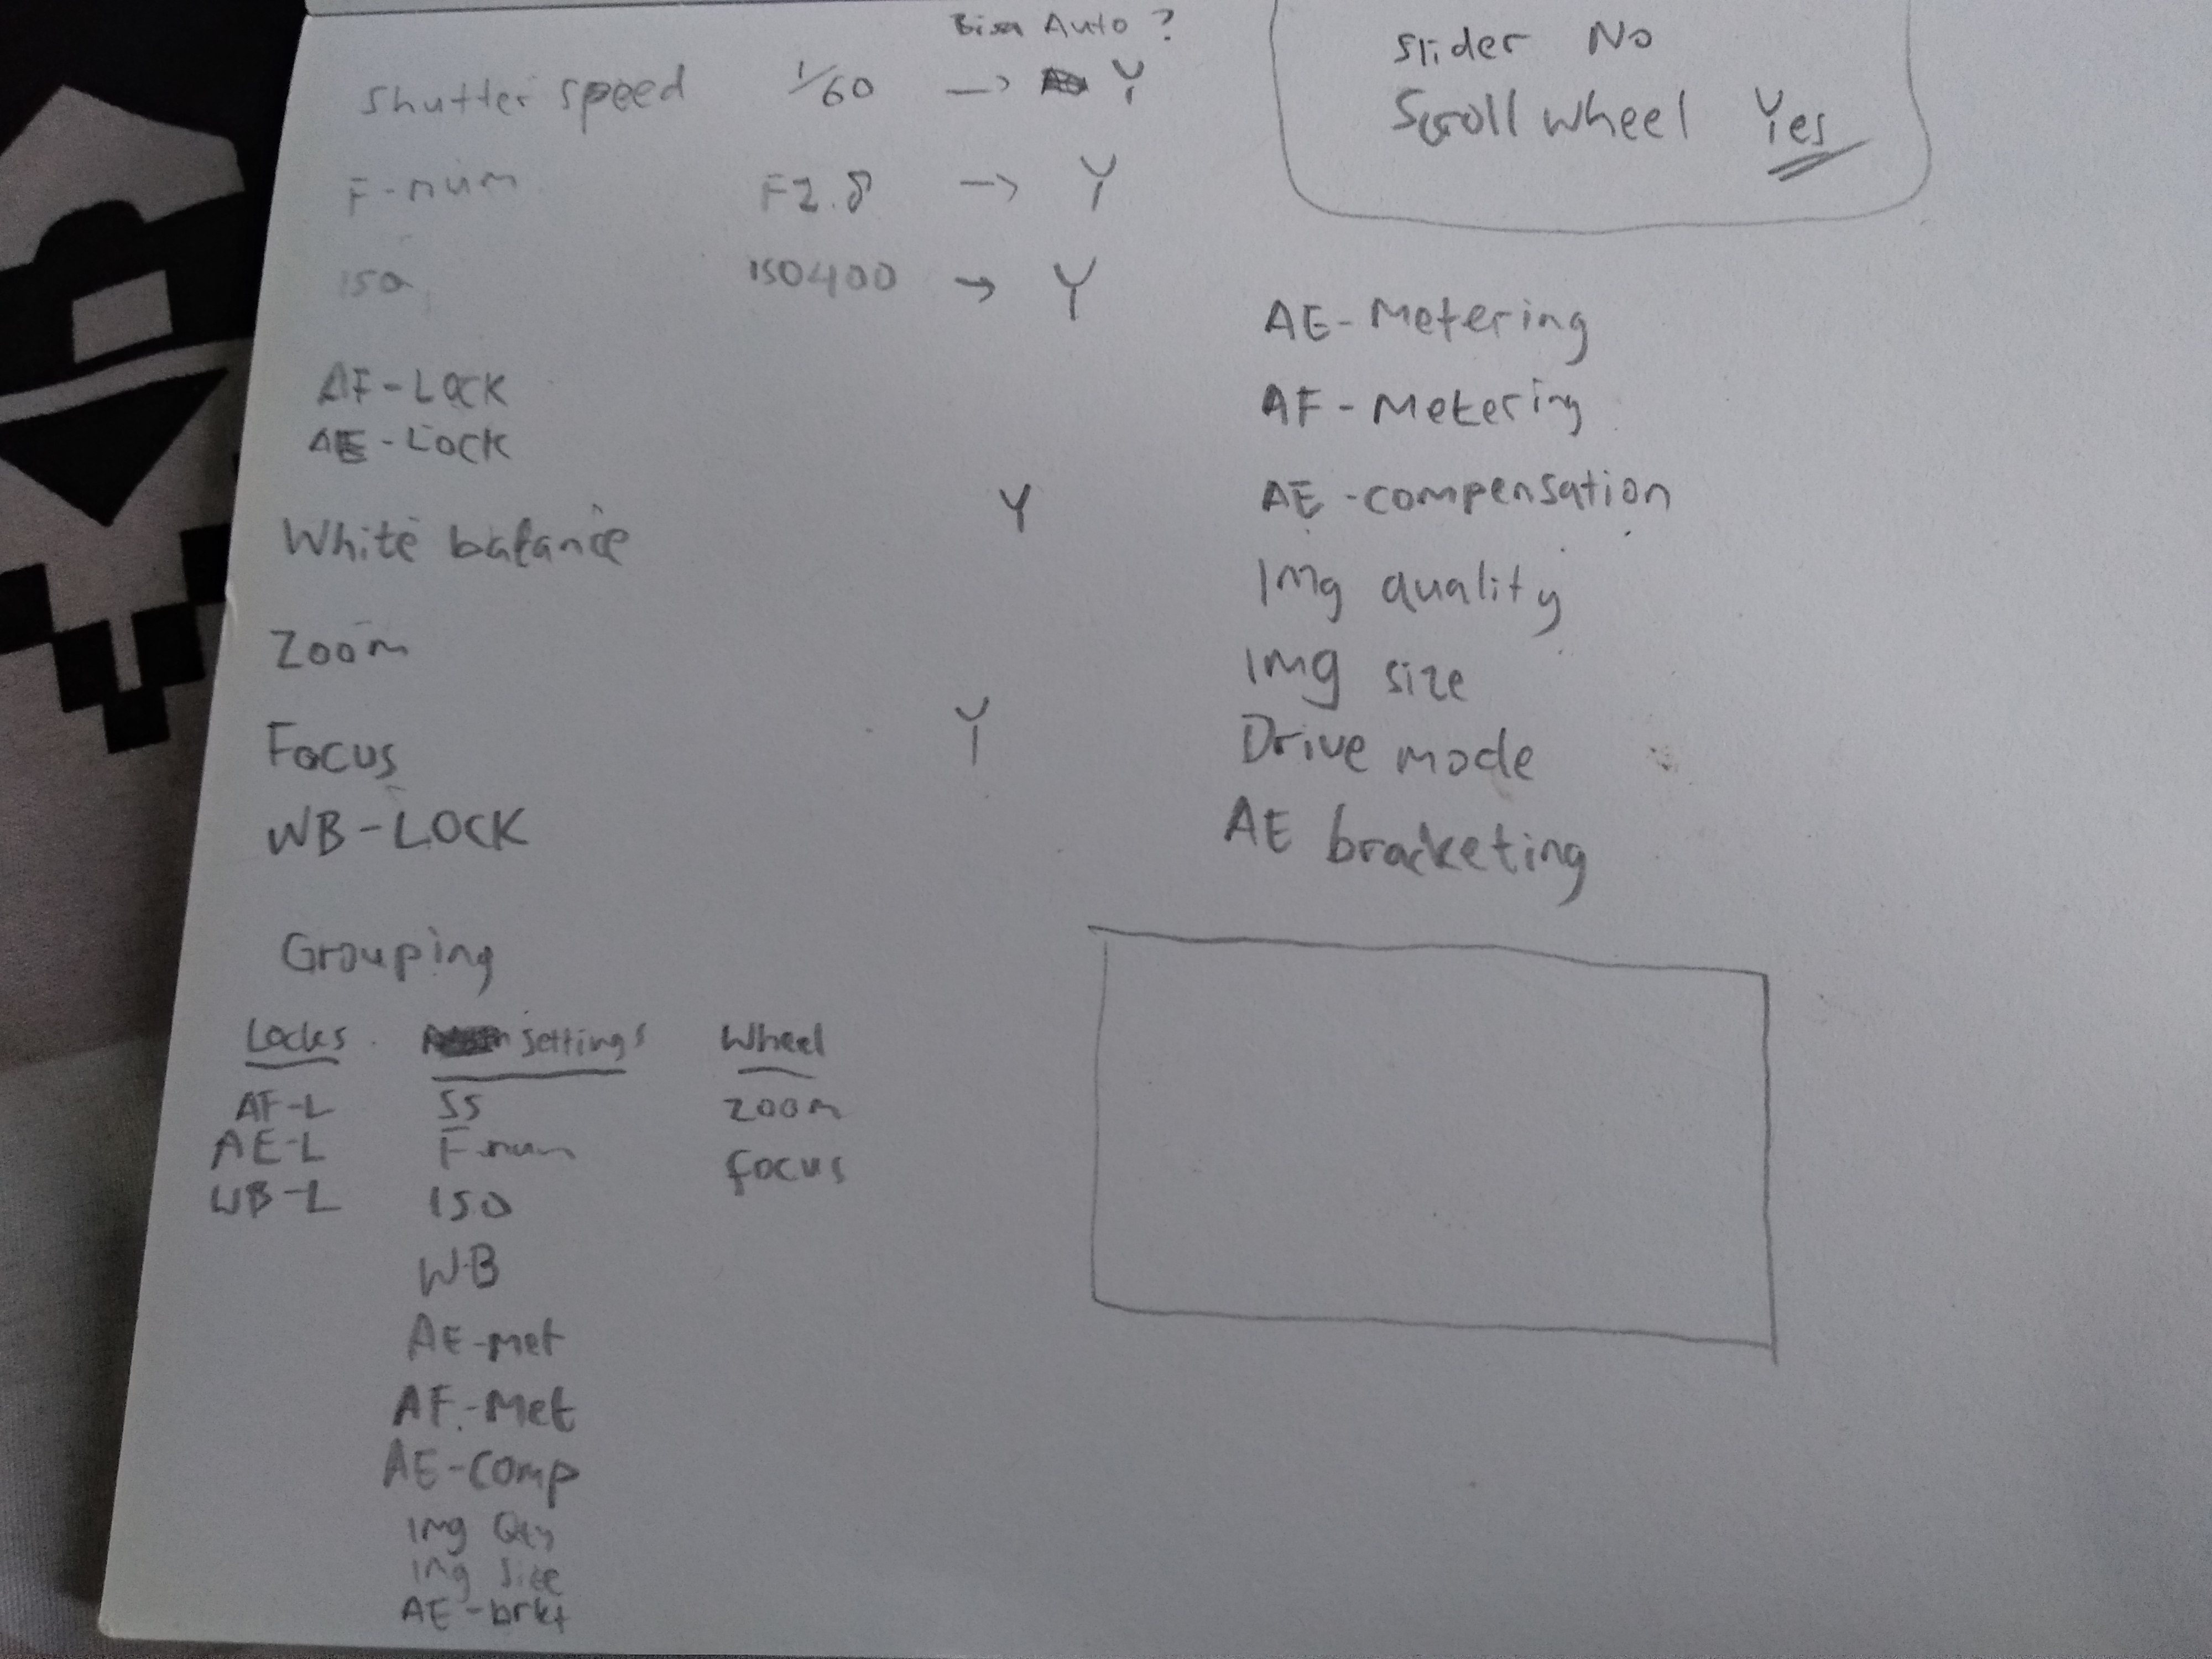 Bisa Auto ?
Shutter speed 1/60 → Y
F-num F2.8 → Y
ISO ISO400 → Y
AF-LOCK
AE-LOCK
White balance Y
Zoom
Focus Y
WB-LOCK
Slider No
Scroll wheel Yes
AE-Metering
AF-Metering
AE-compensation
Img quality
Img size
Drive mode
AE bracketing
Grouping
Locks
AF-L
AE-L
WB-L
settings
SS
F-num
ISO
WB
AE-met
AF-Met
AE-comp
Img Qty
Img Size
AE-brkt
Wheel
Zoom
focus